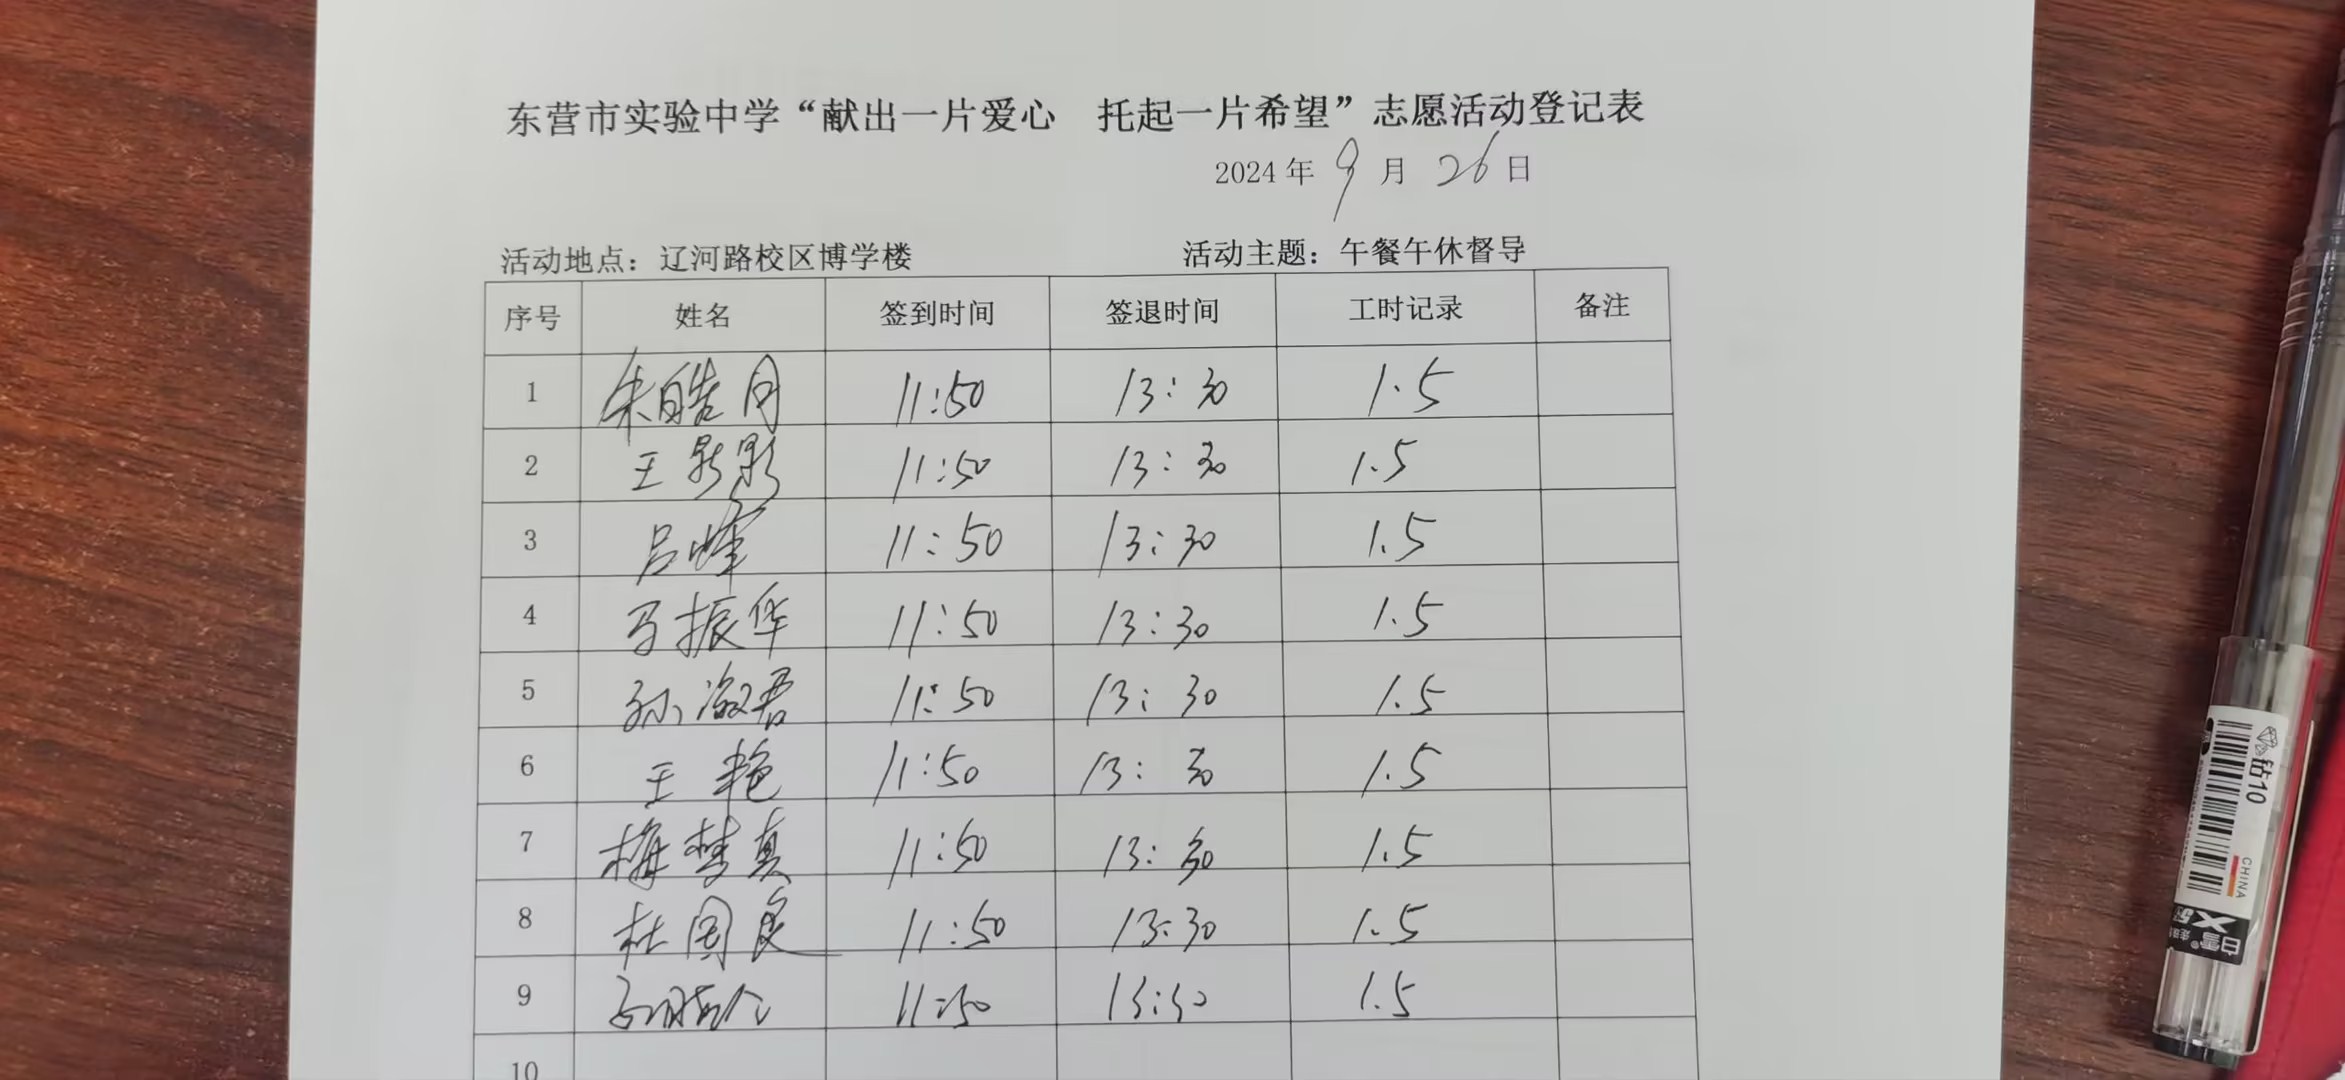 东营市实验中学“献出一片爱心 托起一片希望”志愿活动登记表
2024 年 9 月 26 日
活动地点：辽河路校区博学楼 活动主题：午餐午休督导
序号 姓名 签到时间 签退时间 工时记录 备注
1 朱皓月 11:50 13:30 1.5
2 王 11:50 13:30 1.5
3 吕峰 11:50 13:30 1.5
4 马振华 11:50 13:30 1.5
5 孙淑君 11:50 13:30 1.5
6 王艳 11:50 13:30 1.5
7 梅梦真 11:50 13:30 1.5
8 杜国良 11:50 13:30 1.5
9 11:50 13:30 1.5
10
钻10
CHINA
白雪